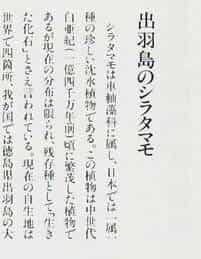 出羽島のシラタマモ
シラタマモは車軸藻科に属し、日本では一属一
種の珍しい沈水植物である。この植物は中世代
白亜紀(一億四千万年前)頃に繁茂した植物で
あるが現在の分布は限られ、残存種として、「生き
た化石」とさえ言われている。現在の自生地は
世界で四箇所、我が国では徳島県出羽島の大